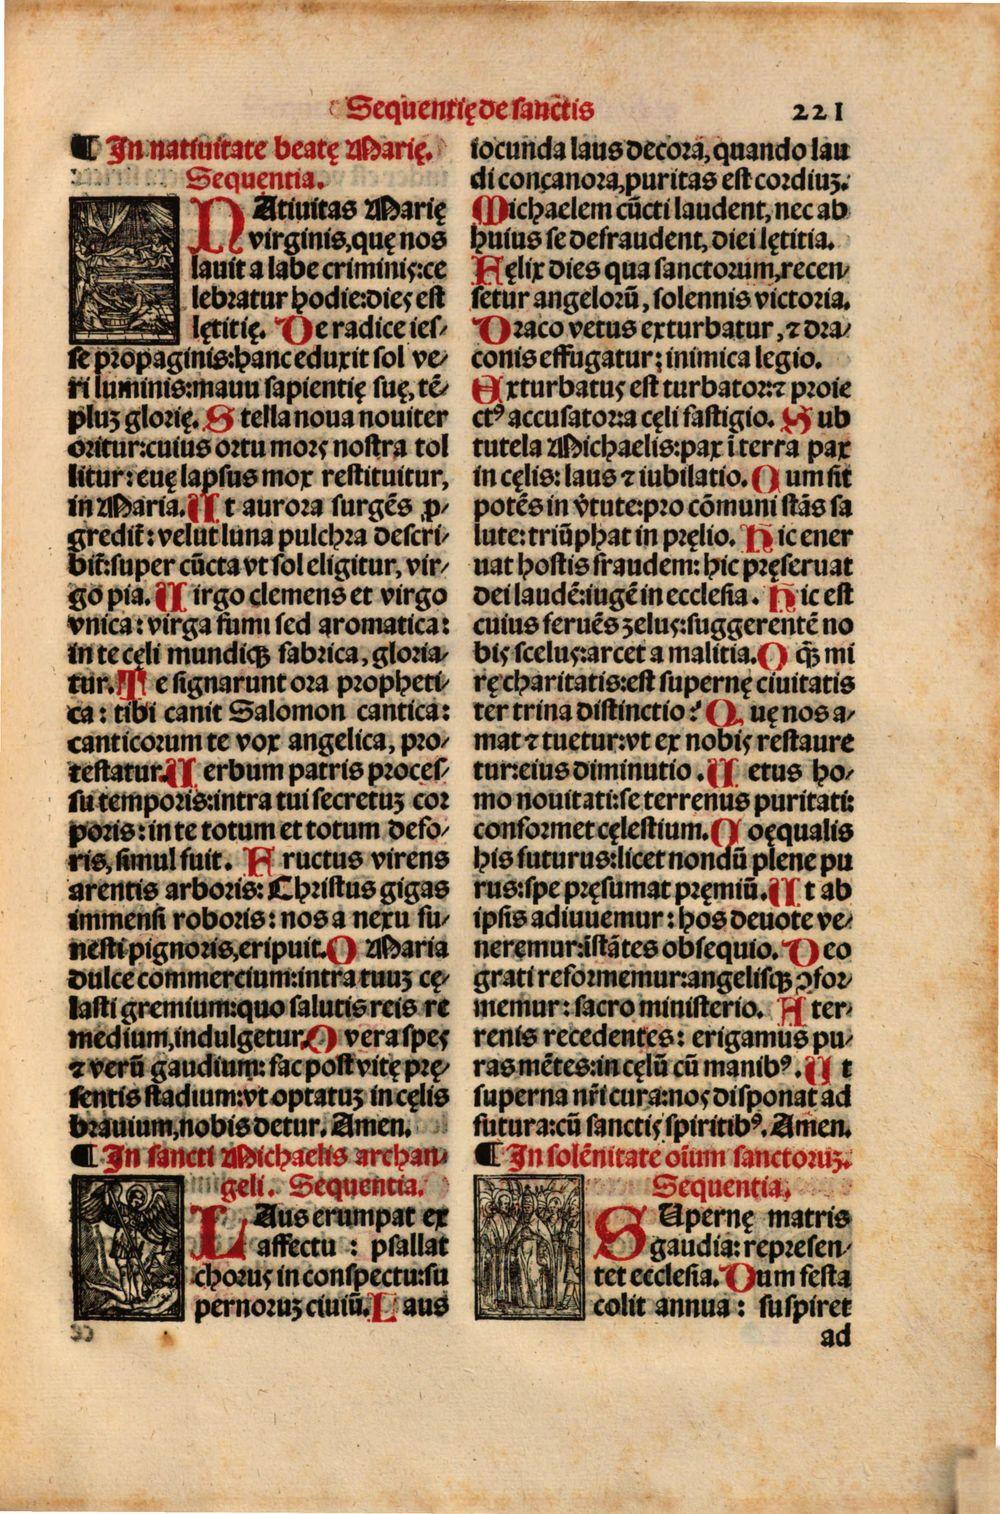 Sequentię de sanctis 221
¶ In natiuitate beatę Marię.
Sequentia.
NAtiuitas Marię
virginis,quę nos
lauit a labe criminis:ce
lebratur hodie:dies est
lętitię. De radice ies-
se propaginis:hanc eduxit sol ve-
ri luminis:manu sapientię suę, tē-
pluꝫ glorię. Stella noua nouiter
oritur:cuius ortu mors nostra tol
litur: euę lapsus mox restituitur,
in Maria. Ut aurora surgēs ꝓ-
gredit̃: velut luna pulchra descri-
bit̃:super cūcta vt sol eligitur, vir-
go pia. Uirgo clemens et virgo
vnica: virga fumi sed aromatica:
in te cęli mundiqꝫ fabrica, gloria-
tur. Te signarunt ora propheti-
ca: tibi canit Salomon cantica:
canticorum te vox angelica, pro-
testatur. Uerbum patris proces-
su temporis:intra tui secretuꝫ cor
poris: in te totum et totum defo-
ris, simul fuit. Fructus virens
arentis arboris: Christus gigas
immensi roboris: nos a nexu fu-
nesti pignoris,eripuit. O Maria
dulce commercium:intra tuuꝫ cę-
lasti gremium:quo salutis reis re
medium,indulgetur. O vera spes
⁊ verū gaudium: fac post vitę prę-
sentis stadium:vt optatuꝫ in cęlis
brauium,nobis detur. Amen.
¶ In sancti Michaelis archan-
geli. Sequentia.
LAus erumpat ex
affectu : psallat
chorus in conspectu:su
pernoruꝫ ciuiū. Laus
iocunda laus decora, quando lau
di concanora,puritas est cordiuꝫ.
Michaelem cūcti laudent, nec ab
huius se defraudent, diei lętitia.
Fęlix dies qua sanctorum,recen-
setur angelorū, solennis victoria.
Draco vetus exturbatur, ⁊ dra-
conis effugatur: inimica legio.
Exturbatus est turbator:⁊ proie
ctꝰ accusator:a cęli fastigio. Sub
tutela Michaelis:pax ī terra pax
in cęlis: laus ⁊ iubilatio. Cum sit
potēs in v̄tute:pro cōmuni stās sa
lute: triūphat in pręlio. Hic ener
uat hostis fraudem: hic pręseruat
dei laudē:iugē in ecclesia. Hic est
cuius feruēs zelus:suggerentē no
bis scelus:arcet a malitia. O qꝫ̄ mi
rę charitatis:est supernę ciuitatis
ter trina distinctio: Quę nos a-
mat ⁊ tuetur:vt ex nobis restaure
tur:eius diminutio. Uetus ho-
mo nouitati:se terrenus puritati:
conformet cęlestium. Coęqualis
his futurus:licet nondū plene pu
rus:spe pręsumat pręmiū. Ut ab
ipsis adiuuemur: hos deuote ve-
neremur:istātes obsequio. Deo
grati reformemur:angelisqꝫ ꝯfor-
memur: sacro ministerio. A ter-
renis recedentes: erigamus pu-
ras mētes:in cęlū cū manibꝰ. Ut
superna nr̄i cura:nos disponat ad
futura:cū sanctis spiritibꝰ. Amen.
¶ In solēnitate oīum sanctoruꝫ.
Sequentia.
SUpernę matris
gaudia: represen-
tet ecclesia. Dum festa
colit annua: suspiret
ad